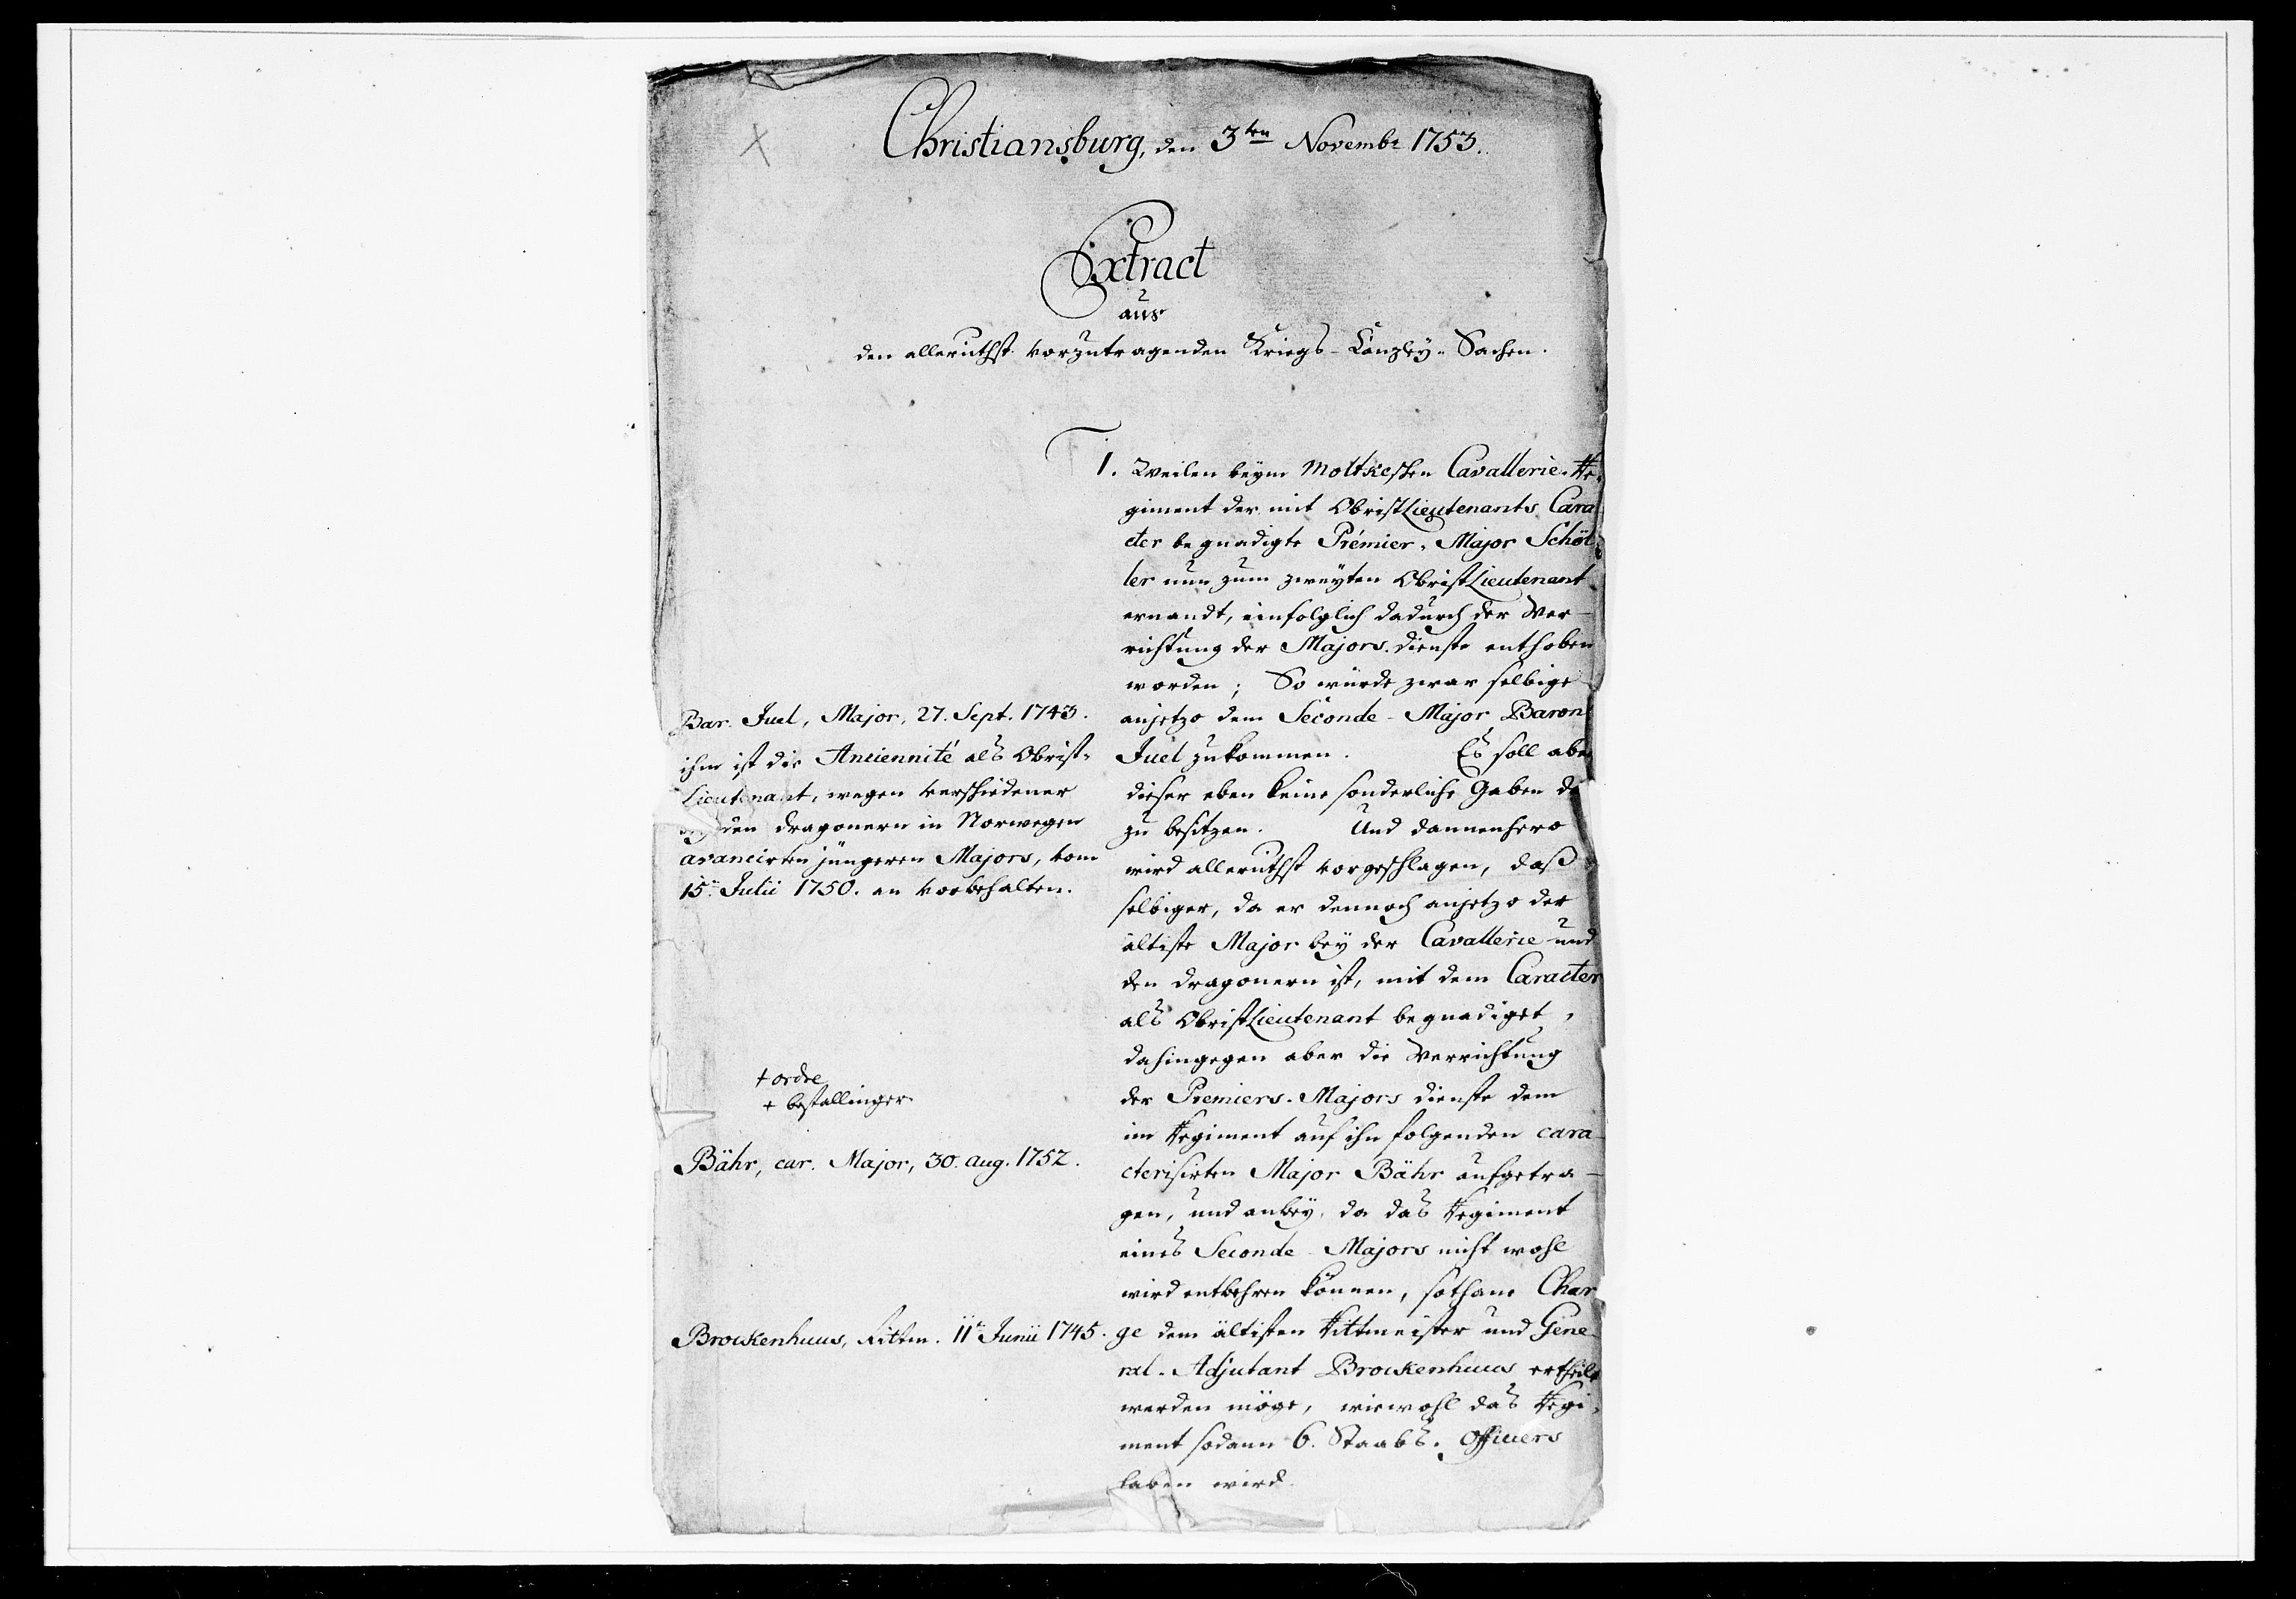 Christiansburg, den 3ten Novembr 1753.
Extract
aus
den allerunthst. vorzutragenden Kriegs-Canzley-Sachen.
1. Weilen beym Moltkeschen Cavallerie-Re-
giment der mit ObristLieutenants Cara
cter begnadigte Prémier-Major Schöl-
ler nun zum zweyten ObristLieutenant
ernandt, einfolglich dadurch der Ver-
richtung der Majors-dienste enthoben
worden; So würde zwar selbige
anjetzo dem Seconde-Major Baron
Juel zukommen. Es soll aber
dieser eben keine sonderliche Gaben
zu besitzen. Und dannenhero
wird allerunthst vorgeschlagen, daß
selbiger, da er dennoch anjetzo der
älteste Major bey der Cavallerie und
den dragonern ist, mit dem Caracter
als ObristLieutenant begnadiget,
dahingegen aber die Verrichtung
der Premiers-Majors dienste dem
im Regiment auf ihn folgenden cara-
cterisirten Major Bähr aufgetra-
gen, und anbey, da das Regiment
eines Seconde-Majors nicht wohl
wird entbehren können, sothane Char
ge dem ältisten Rittmeister und Gene-
ral-Adjutant Brockenhuus ertheilt
werden möge, wiewohl das Regi-
ment sodann 6. Staabs-Officiers
haben wird.
Bar. Juel, Major, 27. Sept. 1743.
ihm ist die Anciennité als Obrist-
Lieutenant, wegen verschiedener
bey den dragonern in Norwegen
avancirten jüngeren Majors, vom
15n Julii 1750. an vorbehalten.
+ ordre
+ bestallinger
Bähr, car. Major, 30. aug. 1752.
Brockenhuus, Rittm. 11t Junii 1745.